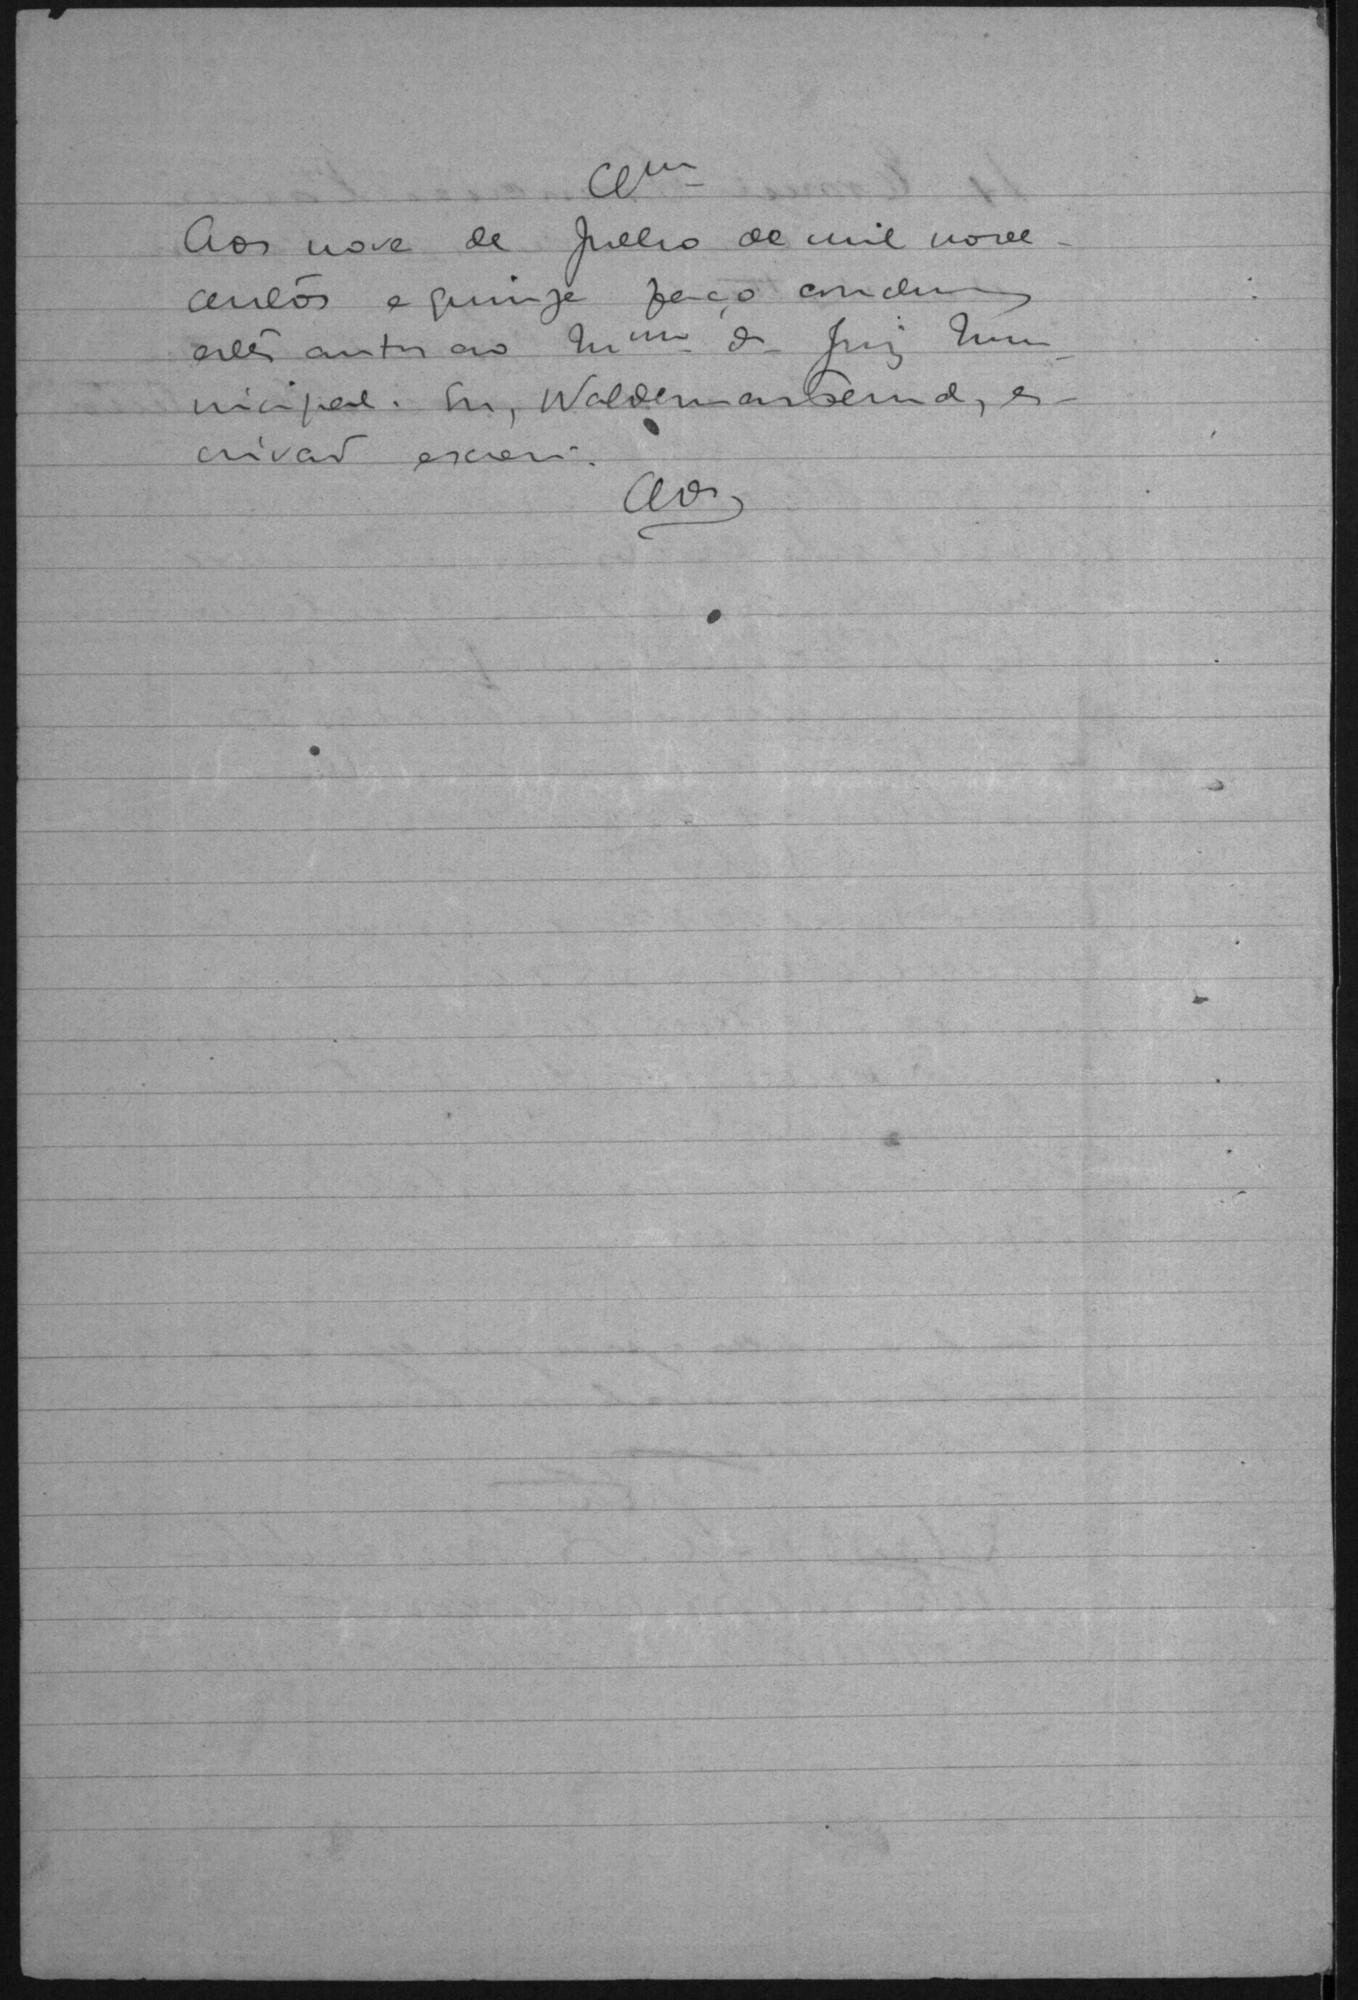 Clm
Aos nove de Julho de mil nove-
centos e quinze faço conclusos
estes autos ao Mmo Dr Juiz Mu-
nicipal. Eu, Waldemar, es-
crivão escrevi.
Clos